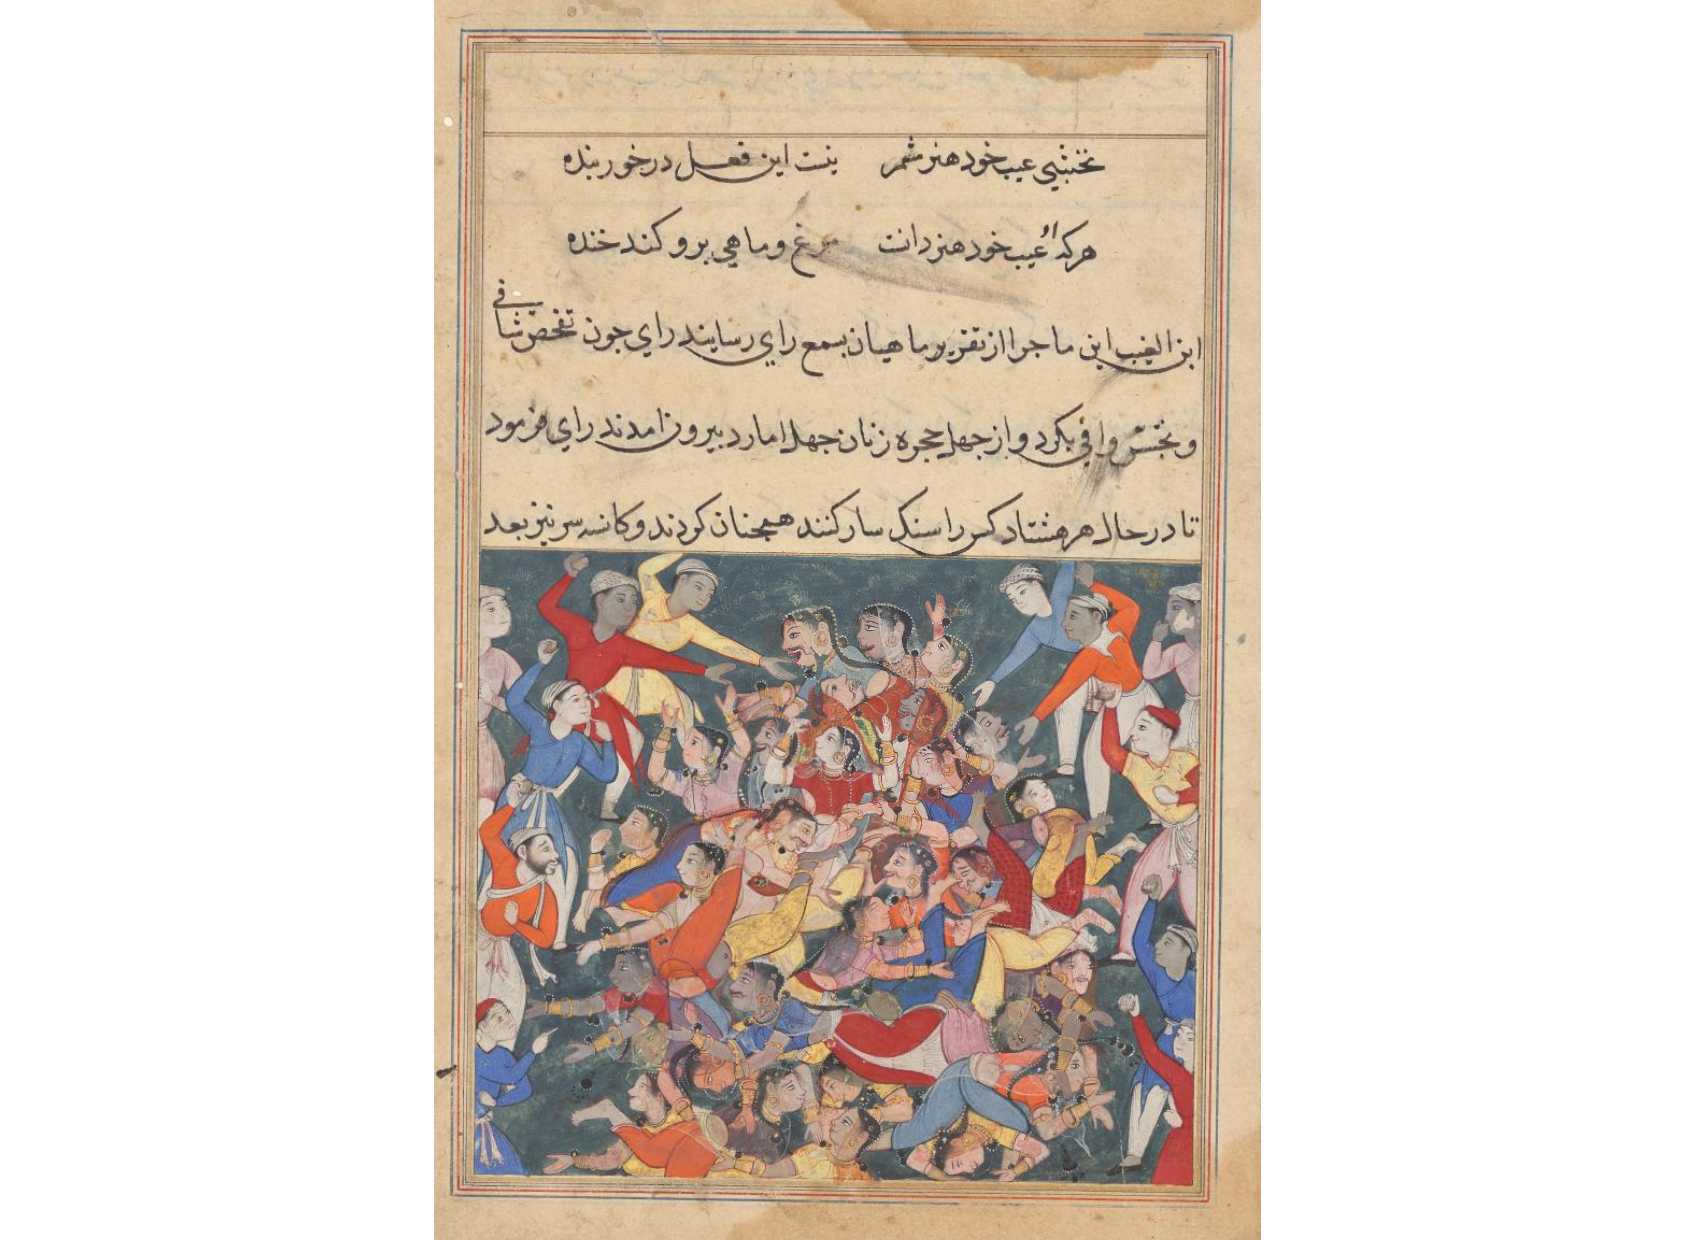 نخشبي عيب خود هنر مشمر نيست اين فعل در خور بنده
هركه او عيب خود هنر دانست مرغ و ماهي برو كند خنده
ابن الغيب اين ماجرا از تقرير ماهيان بسمع راي رسانيد راي جون تفحص شافي
و تجسس وافي بكرد و از جهل حجره زنان جهل امارد بيرون امدند راي فرمود
تا در حال هر هشتاد كس را سنك سار كنند همجنان كردند و كاسه سر نيز بعد